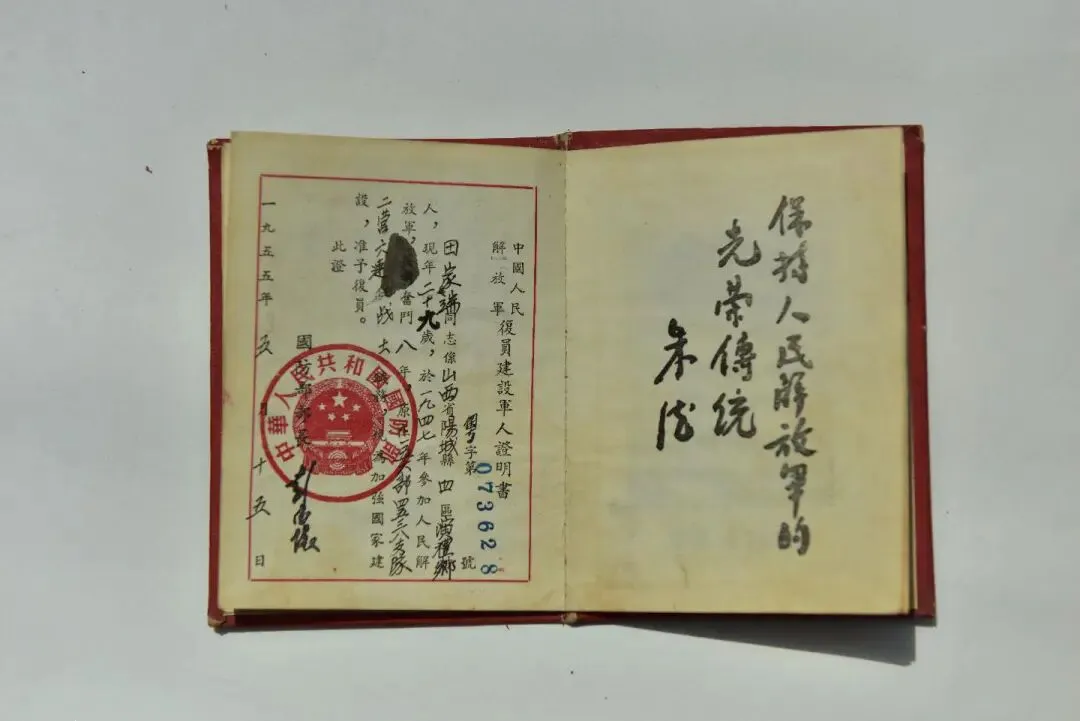 保持人民解放軍的
光荣傳統
朱德
中國人民解放軍
復員建設軍人證明書
字第073628號
田家瑞同志係山西省陽城縣四區
人，現年二十九歲，於一九四七年參加人民解
放軍，奮鬥八年，原在
二营六連战士加強國家建
設，准予復員。
此證
國防部部長彭德懷
一九五五年五月十五日
中華人民共和國國防部